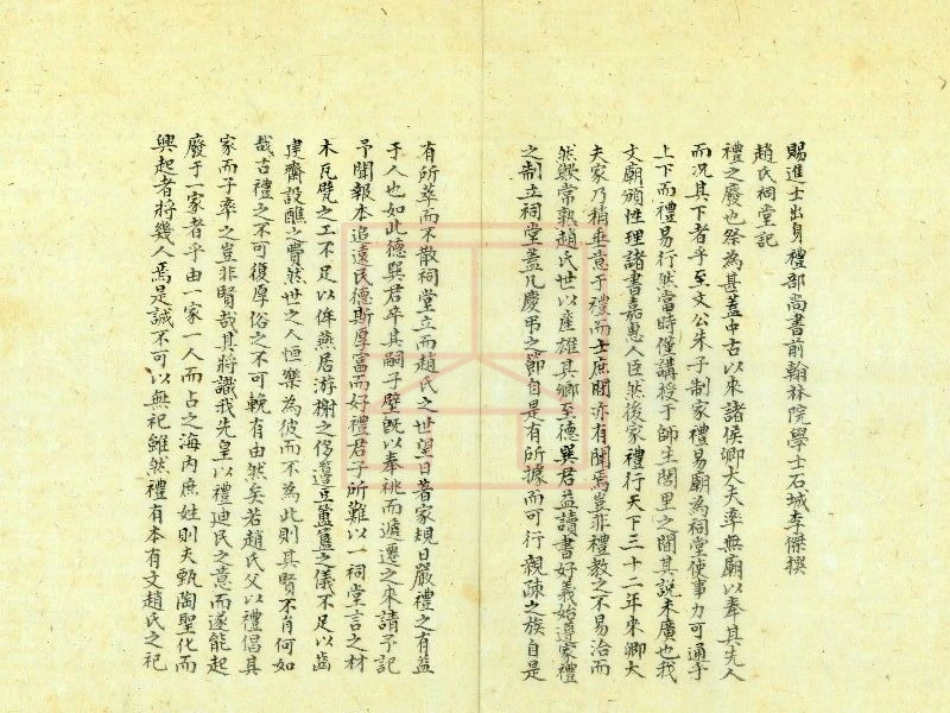 賜進士出身禮部尚書前翰林院學士石城李傑撰
趙氏祠堂記
禮之廢也祭為甚蓋中古以來諸侯卿大夫率無廟以奉其先人
而况其下者乎至文公朱子制家禮易廟為祠堂使事力可通乎
上下而禮易行然當時僅講授于師生閭里之間其說未廣也我
文廟頒性理諸書嘉惠人臣然後家禮行天下三十二年來卿大
夫家乃稍垂意于禮而士庶間亦有聞焉豈非禮教之不易治而
然歟常熟趙氏世以產雄其鄉至德巽君益讀書好義始遵家禮
之制立祠堂蓋凡慶弔之節自是有所據而可行親疎之族自是
有所萃而不散祠堂立而趙氏之世望日著家規日嚴禮之有益
于人也如此德巽君卒其嗣子壁既以奉祧而遞遷之來請予記
予聞報本追遠民德斯厚富而好禮君子所難以一祠堂言之材
木瓦甓之工不足以侔燕居游榭之侈籩豆簠簋之儀不足以齒
建齋設醮之費然世之人恒樂為彼而不為此則其賢不肖何如
哉古禮之不可復厚俗之不可輓有由然矣若趙氏父以禮倡其
家而子率之豈非賢哉其將識我先皇以禮廸民之意而遂能起
廢于一家者乎由一家一人而占之海内庶姓則夫甄陶聖化而
興起者將幾人焉是誠不可以無祀雖然禮有本有文趙氏之祀